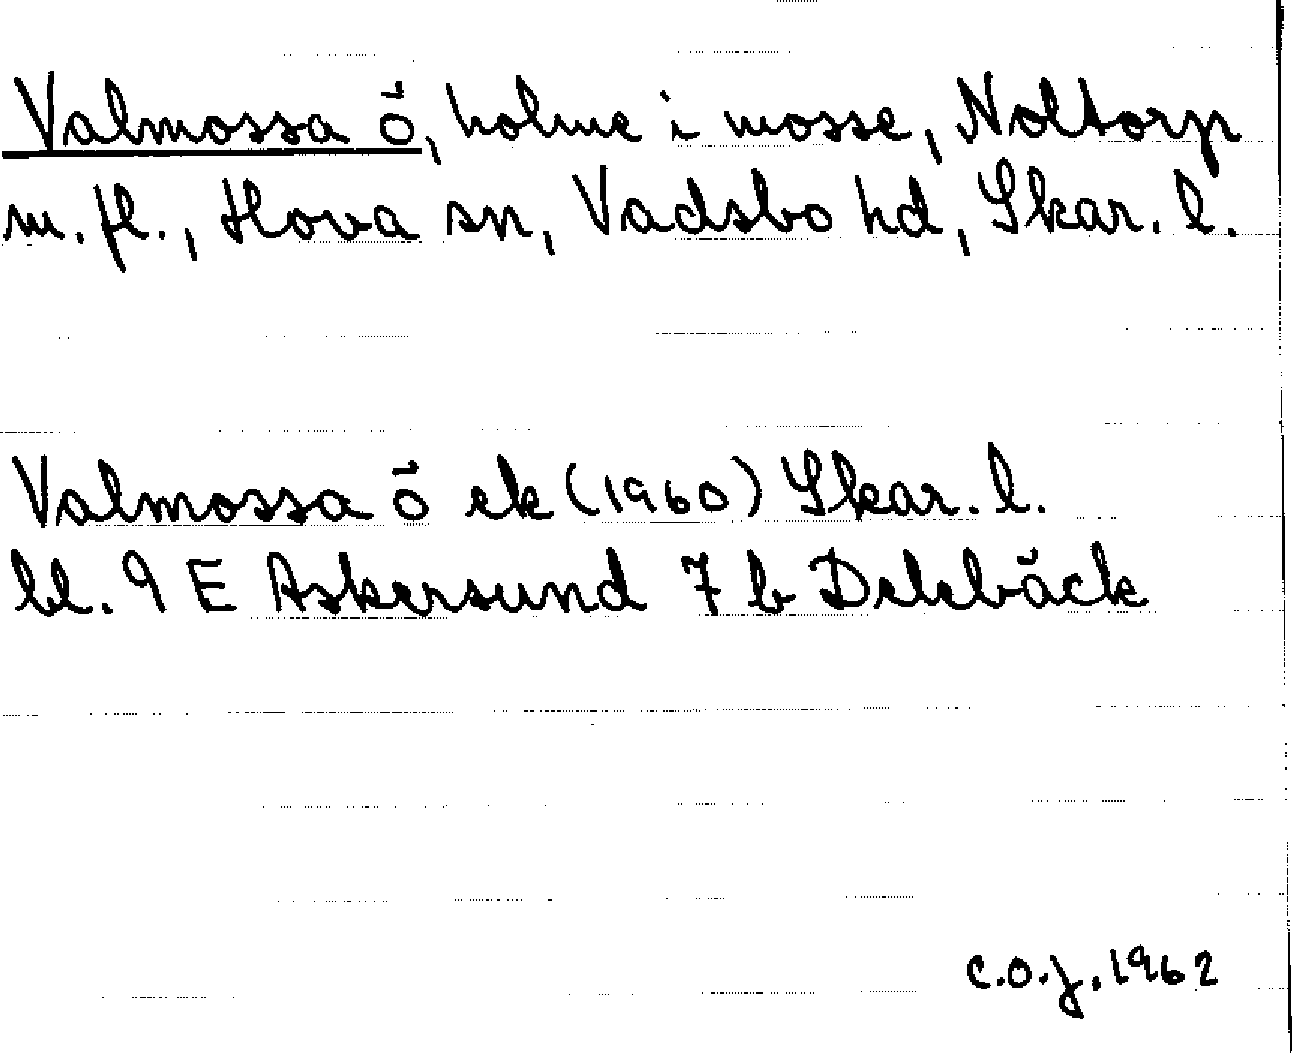 Valmossa ö, holme i mosse, Noltorp
m. fl., Hova sn, Vadsbo hd, Skar. l.
Valmossa ö ek (1960) Skar. l.
bl. 9 E Askersund 7 b Delebäck
C.O.J. 1962